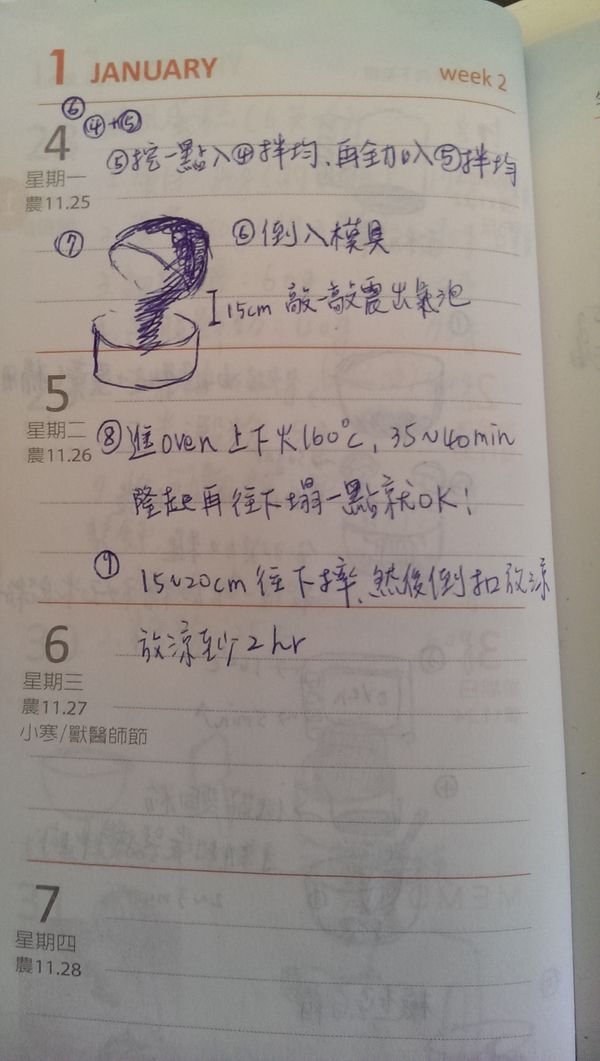 1 JANUARY week 2
⑥ ④+⑤
4
星期一
農11.25
⑤挖一點入④拌均、再全加入⑤拌均
⑦ ⑥倒入模具
15cm 敲一敲震出氣泡
5
星期二
農11.26
⑧進oven 上下火160°C, 35~40min
隆起再往下塌一點就OK!
⑨ 15~20cm 往下摔、然後倒扣放涼
放涼至少2hr
6
星期三
農11.27
小寒/獸醫師節
7
星期四
農11.28